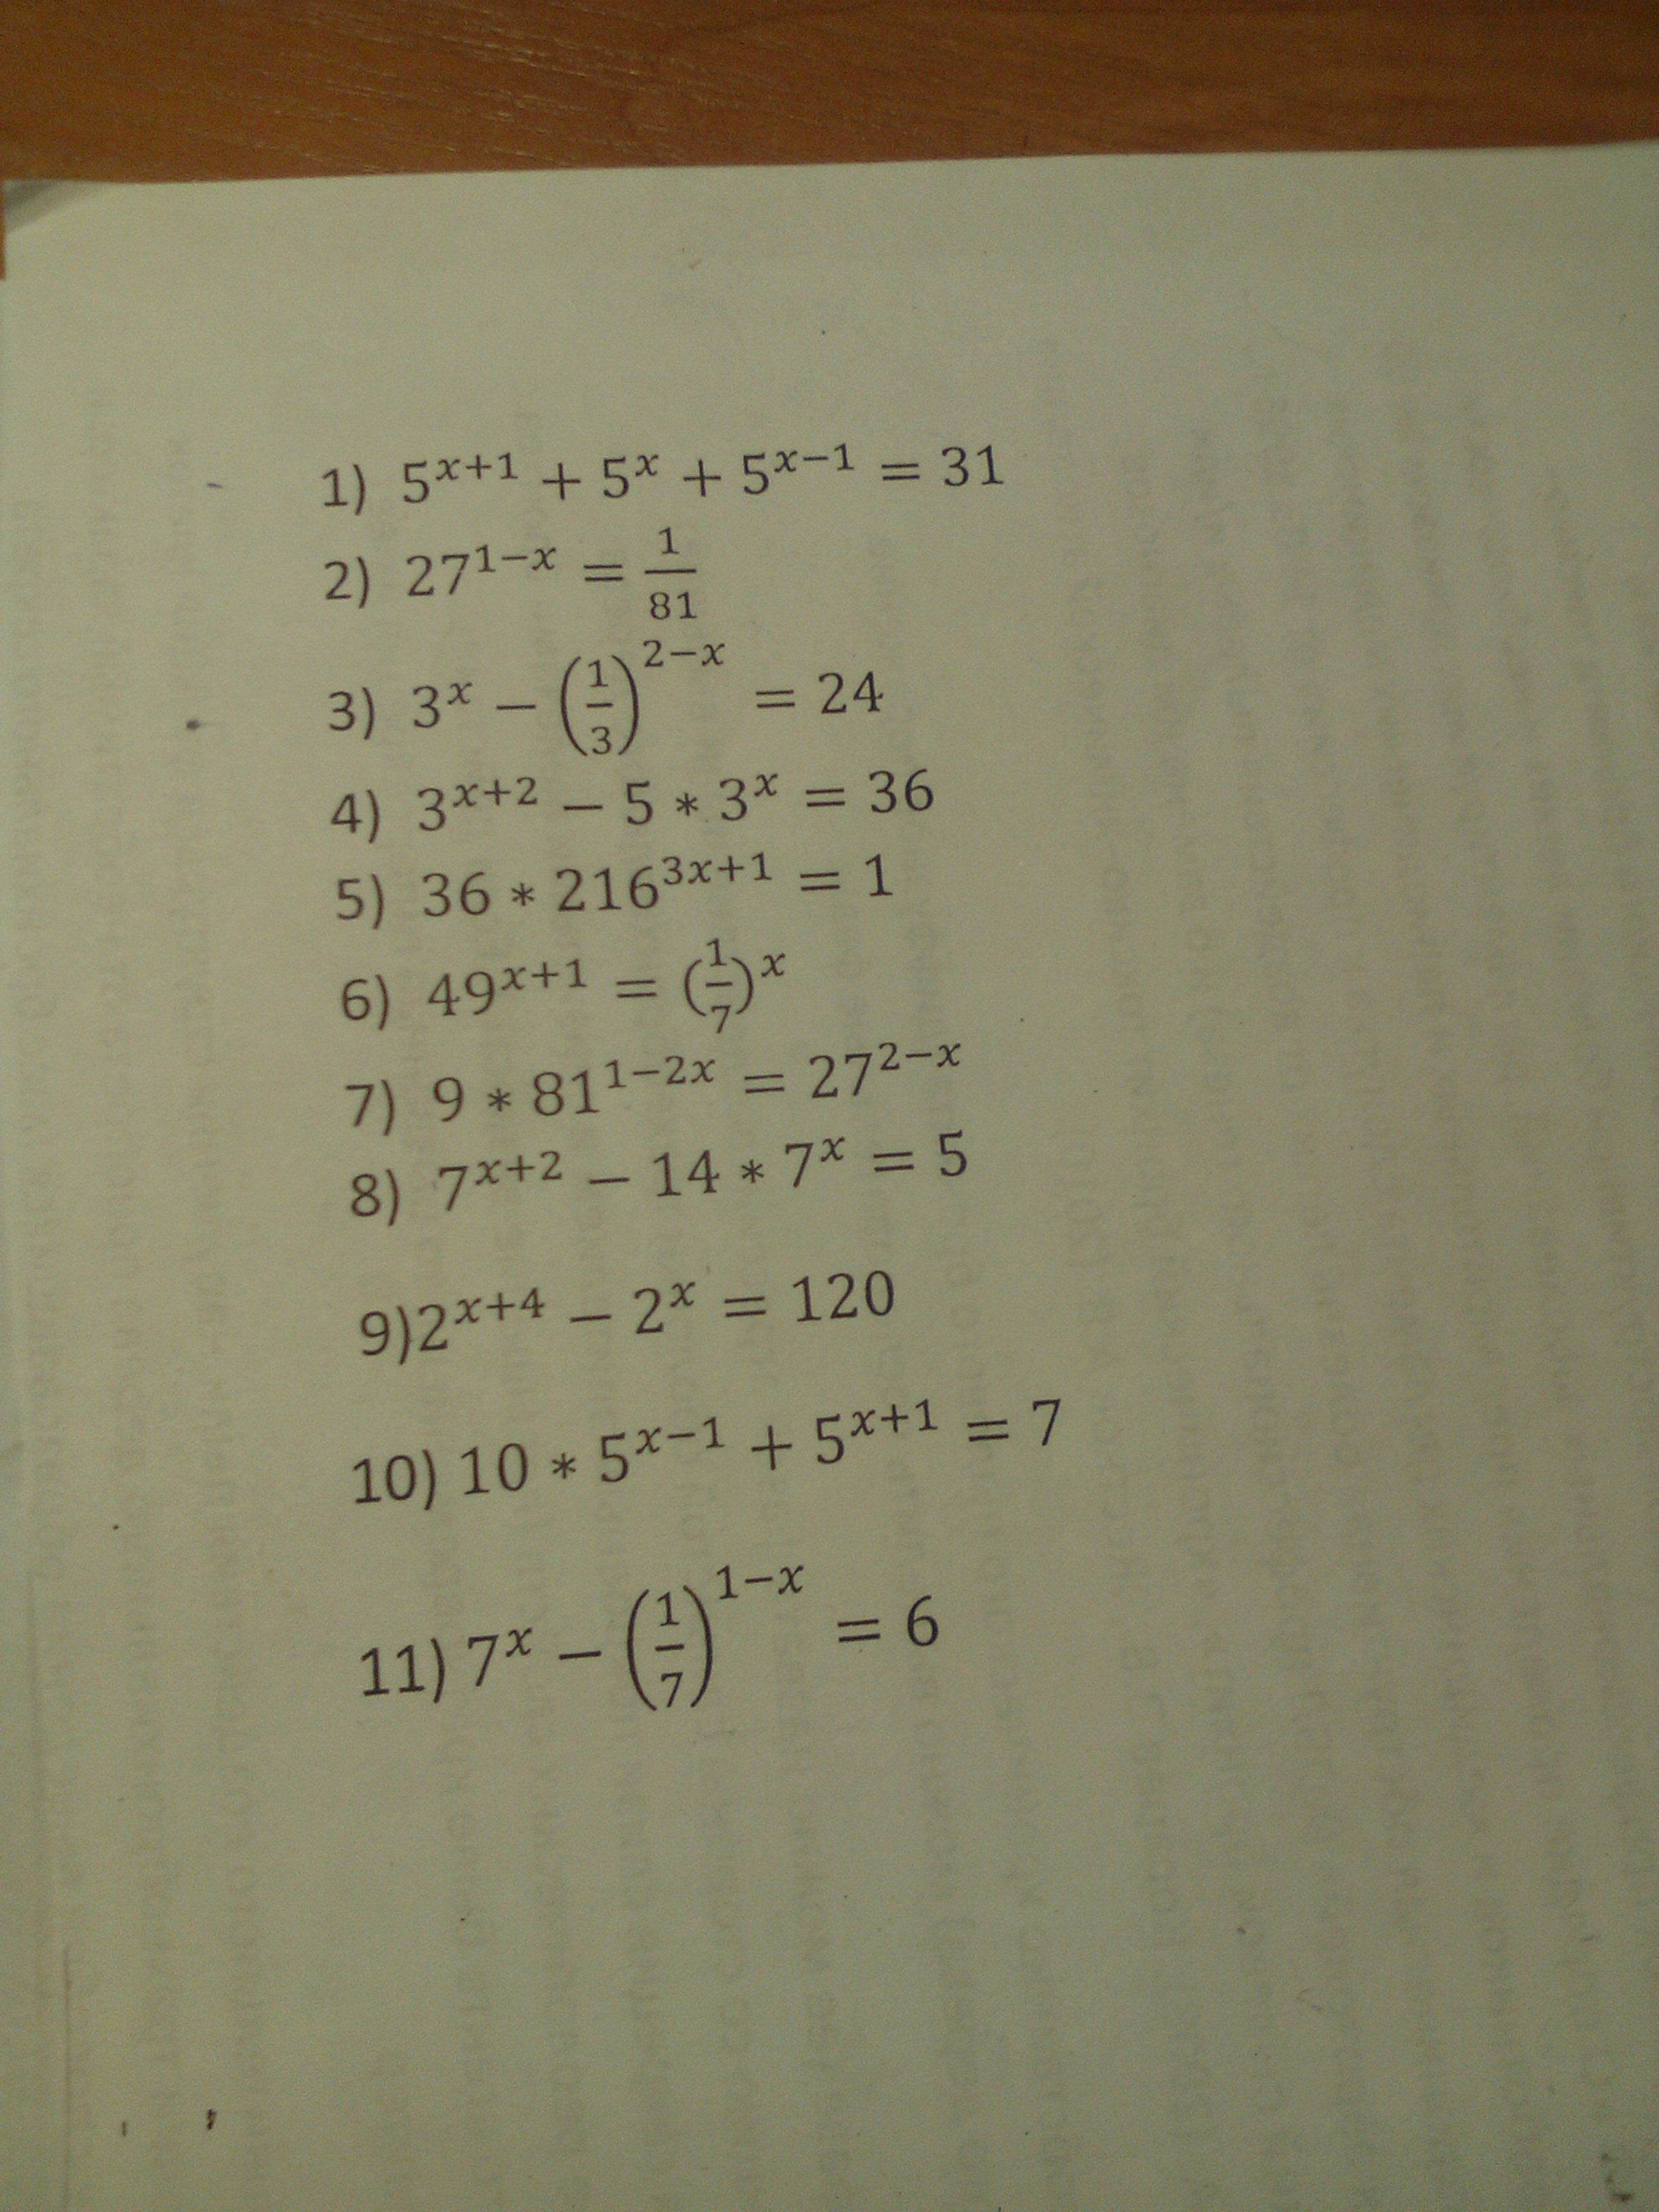 1) 5^{x+1} + 5^x + 5^{x−1} = 31
2) 27^{1−x} = \frac{1}{81}
3) 3^x − \left(\frac{1}{3}\right)^{2−x} = 24
4) 3^{x+2} − 5 * 3^x = 36
5) 36 * 216^{3x+1} = 1
6) 49^{x+1} = (\frac{1}{7})^x
7) 9 * 81^{1−2x} = 27^{2−x}
8) 7^{x+2} − 14 * 7^x = 5
9)2^{x+4} − 2^x = 120
10) 10 * 5^{x−1} + 5^{x+1} = 7
11) 7^x − \left(\frac{1}{7}\right)^{1−x} = 6